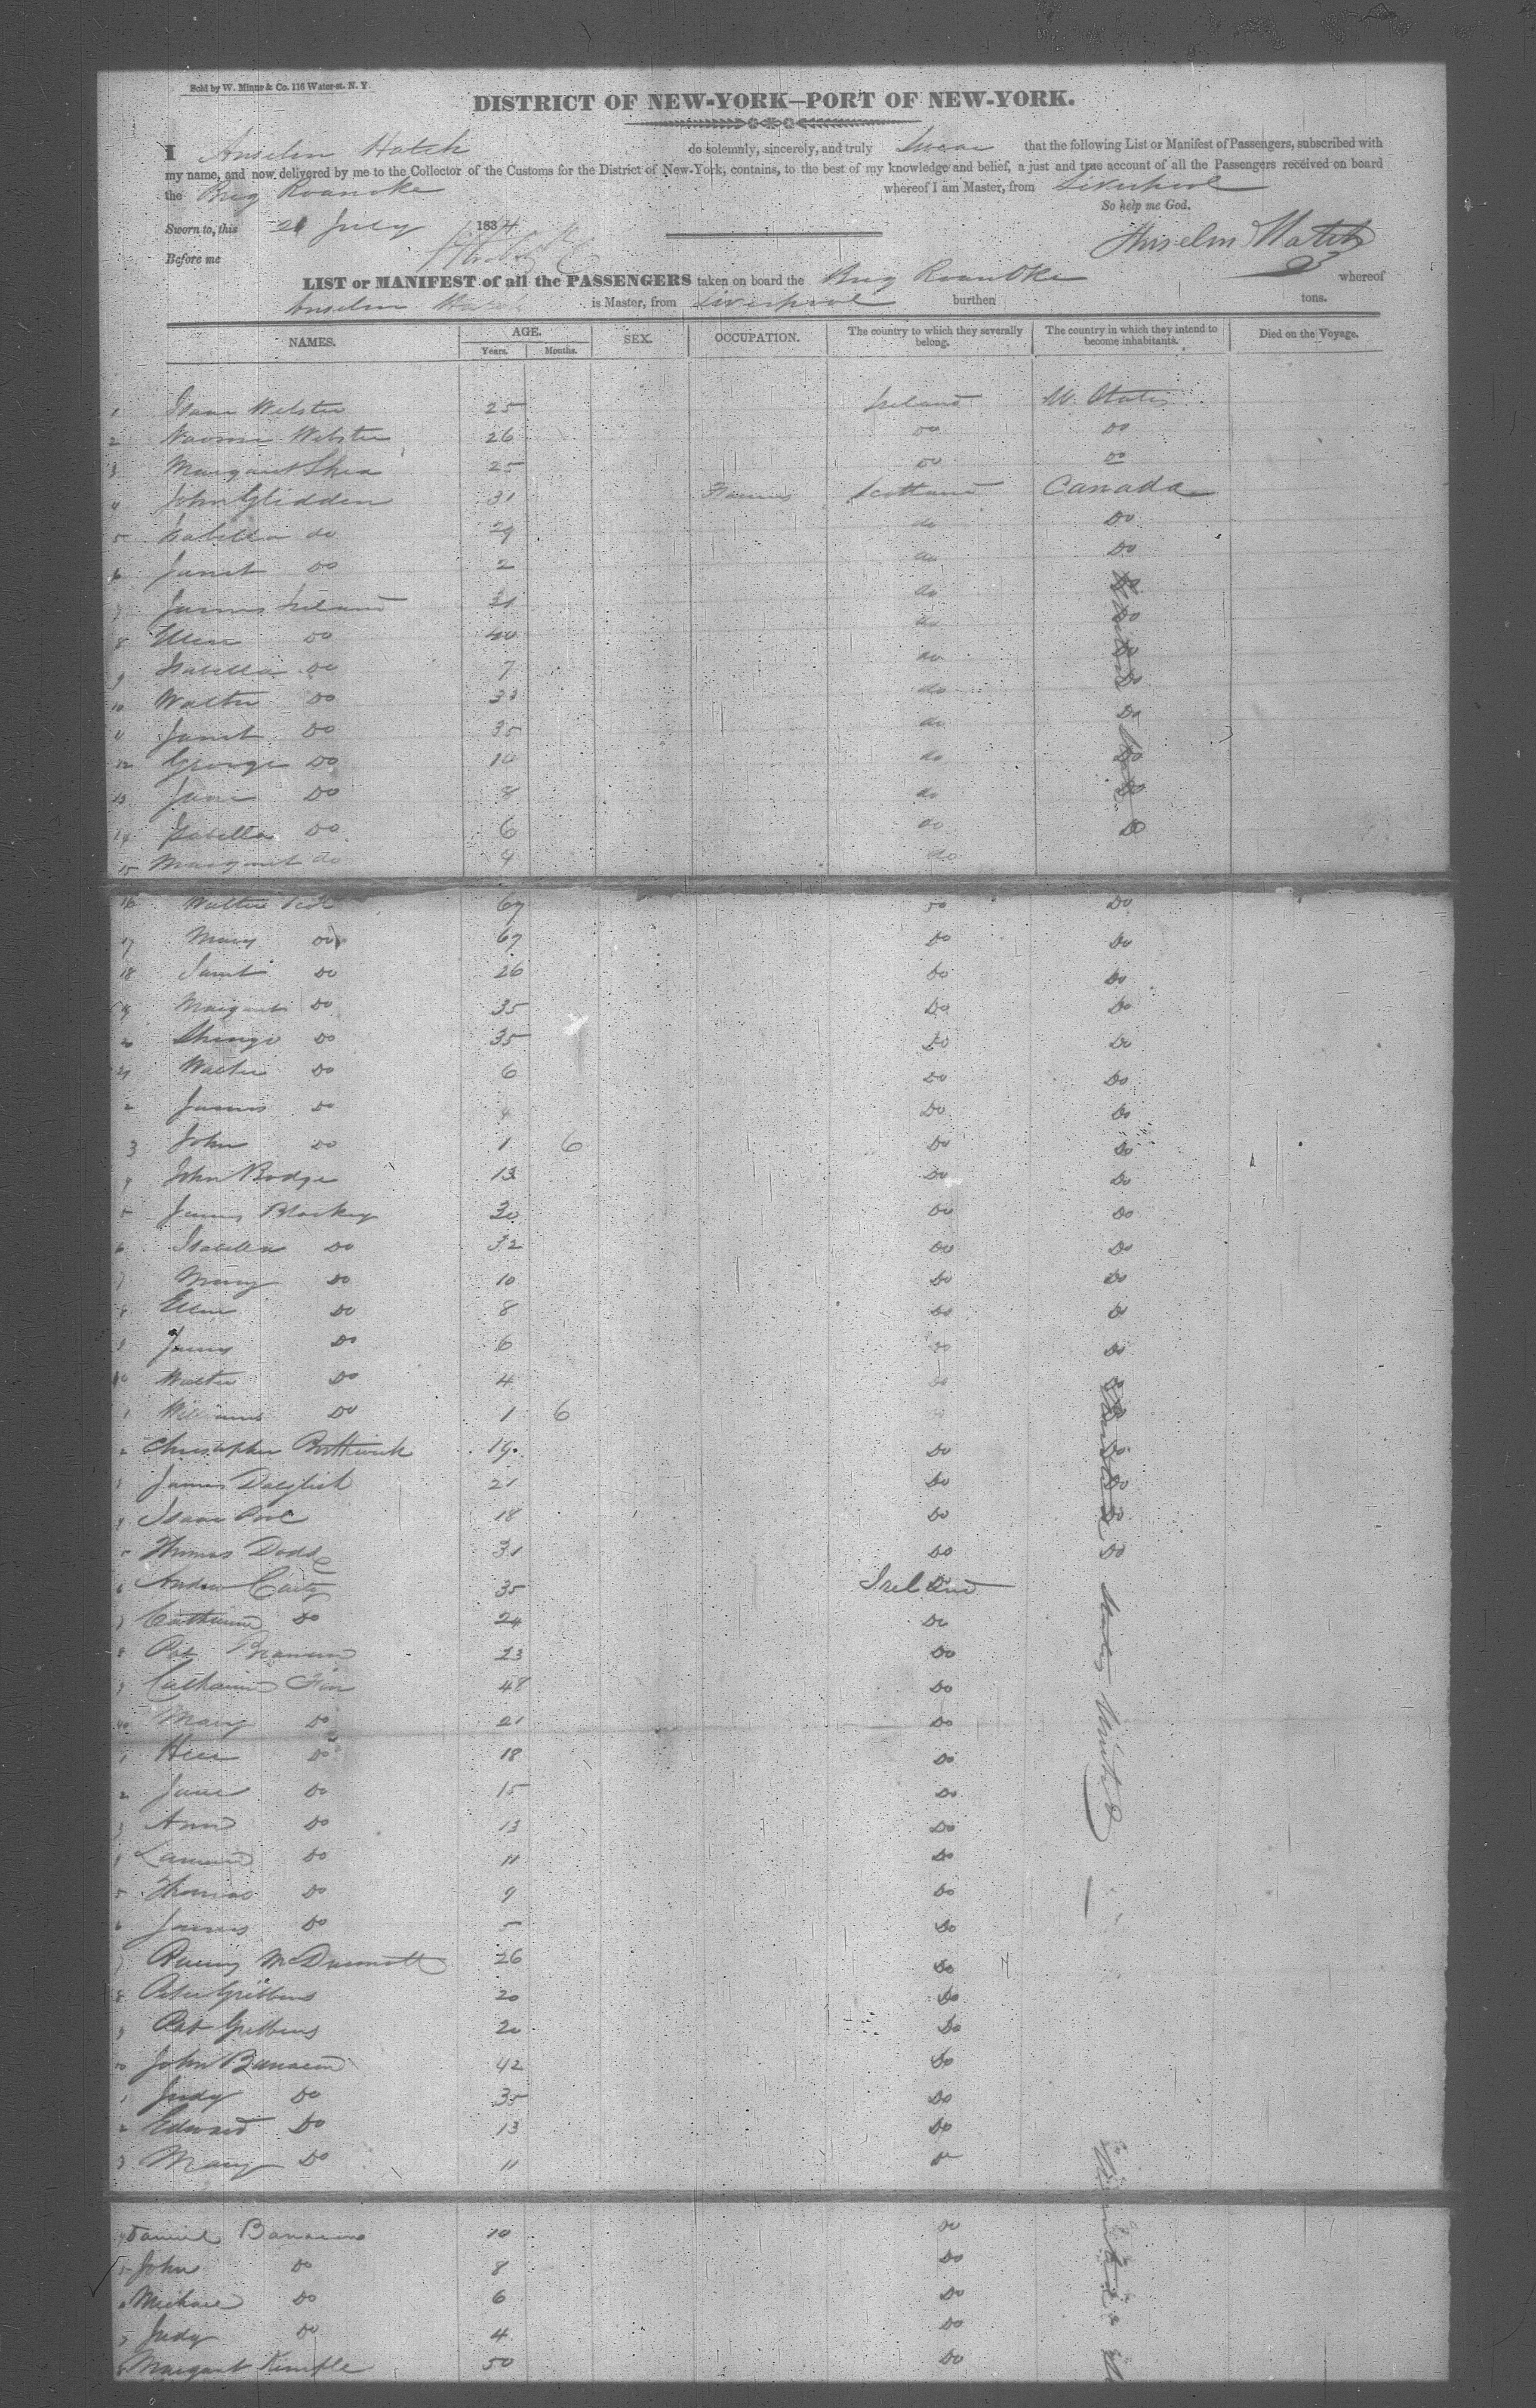 Sold by W. Minns & Co. 116 Water-st. N. Y.
DISTRICT OF NEW-YORK—PORT OF NEW-YORK.
I Anselm Hatch do solemnly, sincerely, and truly Swear that the following List or Manifest of Passengers, subscribed with
my name, and now delivered by me to the Collector of the Customs for the District of New-York, contains, to the best of my knowledge and belief, a just and true account of all the Passengers received on board
the Brig Roanoke whereof I am Master, from Liverpool
So help me God.
Sworn to, this 21 July 1834
Anselm Hatch
Before me
LIST or MANIFEST of all the PASSENGERS taken on board the Brig Roanoke whereof
Anselm Hatch is Master, from Liverpool burthen tons.
NAMES. AGE. Years. Months. SEX. OCCUPATION. The country to which they severally belong. The country in which they intend to become inhabitants. Died on the Voyage.
1 Isaac Webster 25 Ireland U. States
2 Naomi Webster 26 Do Do
3 Margaret Shea 25 Do Do
4 John Glidden 31 Scotland Canada
5 Isabella do 29 do Do
6 Janet Do 2 do Do
7 James Ireland 31 do Do
8 Ellen Do 40 do Do
9 Isabella Do 7 do Do
10 Walter Do 33 do Do
11 Janet Do 35 do Do
12 George Do 10 do Do
13 Jane Do 8 do Do
14 Isabella Do 6 do Do
15 Margaret do 4 do
16 Walter 67 Do Do
17 Mary Do 67 Do Do
18 Janet Do 26 Do Do
19 Margaret Do 35 Do Do
20 Do 35 Do Do
21 Walter Do 6 Do Do
2 James Do 4 Do Do
3 John Do 1 6 Do Do
4 John Bodge 13 Do Do
5 James Blackey 30 Do Do
6 Isabella Do 32 Do Do
7 Mary Do 10 Do Do
8 Ellen Do 8 Do Do
9 James Do 6 Do Do
30 Walter Do 4 Do Do
1 William Do 1 6 Do
2 Christopher Borthwick 19 Do Do
3 James Dalglish 21 Do Do
4 Isaac 18 Do Do
5 Thomas Dodds 31 Do Do
6 Andrew Carty 35 Ireland
7 Catherine Do 24 Do
8 Pat 23 Do
9 Catharine Finn 48 Do
40 Mary Do 21 Do
1 Do 18 Do
2 Jane Do 15 Do
3 Ann Do 13 Do
4 Do 11 Do
5 Thomas Do 9 Do
6 James Do 5 Do
7 McDermott 26 Do
8 Peter Gribbens 20 Do
9 Pat Gribbens 20 Do
50 John 42 Do
1 Judy Do 35 Do
2 Edward Do 13 Do
3 Mary Do 11 Do
4 Daniel 10 Do
5 John Do 8 Do
6 Michael Do 6 Do
7 Judy Do 4 Do
8 Margaret Kimple 50 Do
States United